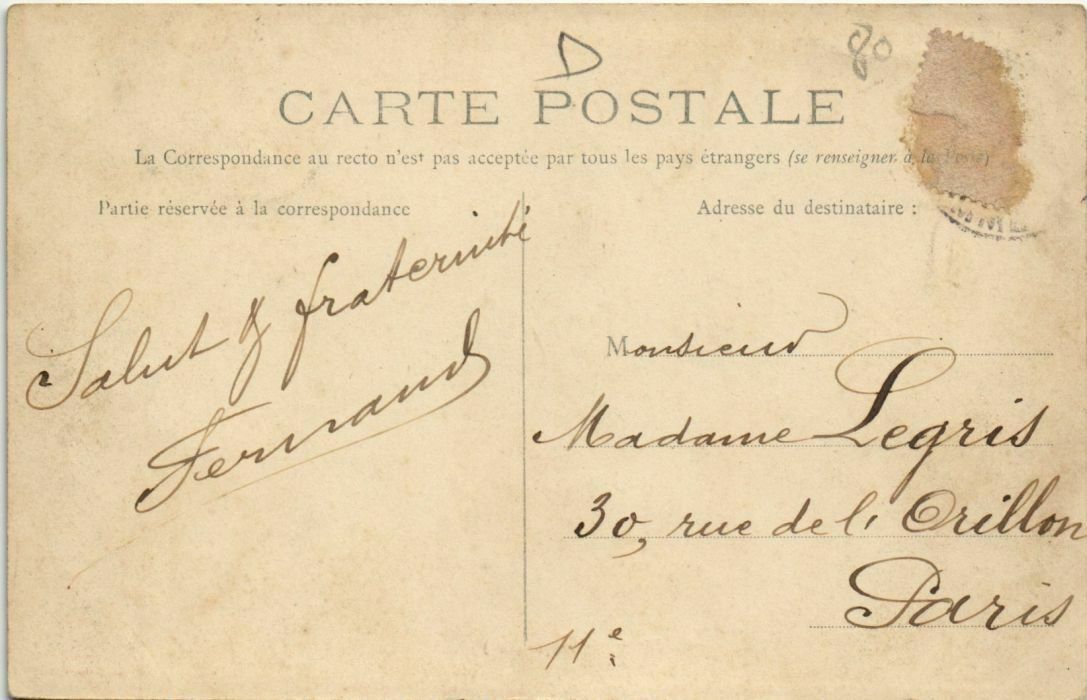 D
80
CARTE POSTALE
La Correspondance au recto n'est pas acceptée par tous les pays étrangers (se renseigner à la Poste)
Partie réservée à la correspondance
Salut & fraternité
Fernand
Adresse du destinataire :
Monsieur
Madame Legris
30, rue de l'Orillon
Paris
11e